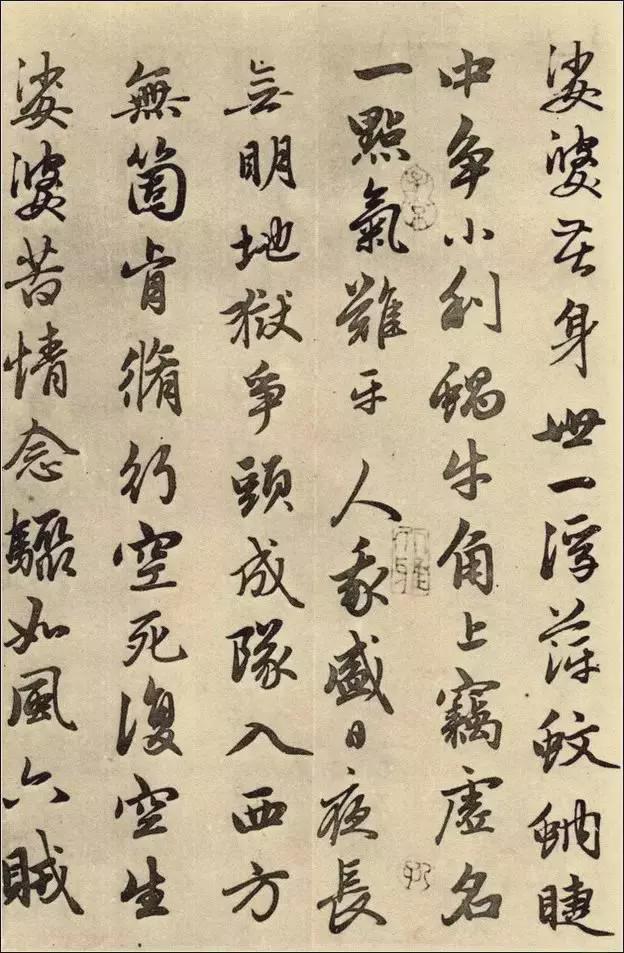 娑婆苦身世一浮萍蚊蚋睫
中争小利蝸牛角上竊虛名
一點氣難平人我盛日夜長
无明地獄爭頭成隊入西方
無箇肯脩行空死復空生
娑婆苦情念驟如風六賊